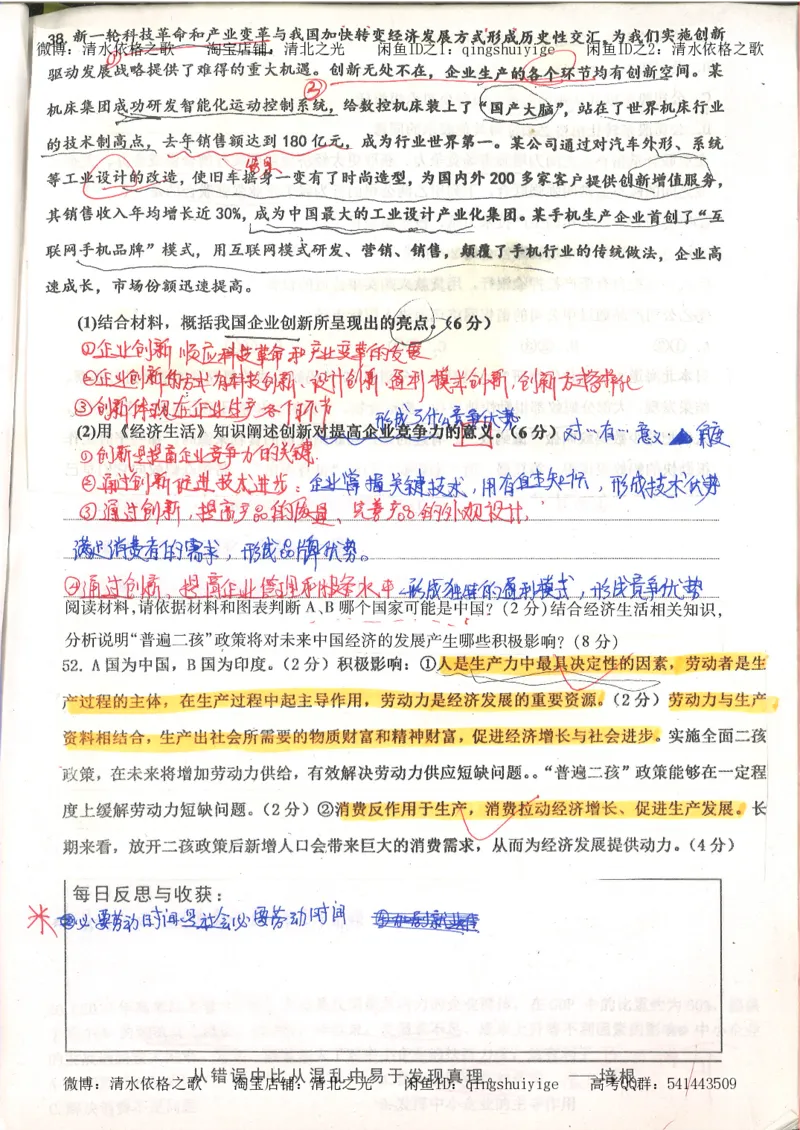 38. 新一轮科技革命和产业变革与我国加快转变经济发展方式形成历史性交汇，为我们实施创新
微博：清水依格之歌 淘宝店铺：清北之光 闲鱼ID之1：qingshuiyige 闲鱼ID之2：清水依格之歌
驱动发展战略提供了难得的重大机遇。创新无处不在，企业生产的各个环节均有创新空间。某
机床集团成功研发智能化运动控制系统，给数控机床装上了“国产大脑”，站在了世界机床行业
的技术制高点，去年销售额达到 180 亿元，成为行业世界第一。某公司通过对汽车外形、系统
等工业设计的改造，使旧车摇身一变有了时尚造型，为国内外 200 多家客户提供创新增值服务，
其销售收入年均增长近 30%，成为中国最大的工业设计产业化集团。某手机生产企业首创了“互
联网手机品牌”模式，用互联网模式研发、营销、销售，颠覆了手机行业的传统做法，企业高
速成长，市场份额迅速提高。
(1)结合材料，概括我国企业创新所呈现出的亮点。（6 分）
①企业创新顺应科技革命和产业变革的发展
②企业创新的方式有科技创新、设计创新、通利模式创新，创新方式多样化
③创新体现在企业生产各个环节
形成了什么竞争优势
(2)用《经济生活》知识阐述创新对提高企业竞争力的意义。（6 分） 对“有”意义 角度
①创新是提高企业竞争力的关键.
②通过创新促进技术进步：企业掌握关键技术，用有自主知识，形成技术优势
③通过创新，提高产品的质量、完善产品的外观设计，
满足消费者的需求，形成品牌优势。
④通过创新、提高企业管理和服务水平，形成独胜的通利模式，形成竞争优势
阅读材料，请依据材料和图表判断 A、B 哪个国家可能是中国？（2 分）结合经济生活相关知识，
分析说明“普遍二孩”政策将对未来中国经济的发展产生哪些积极影响？（8 分）
52. A 国为中国，B 国为印度。（2 分）积极影响：①人是生产力中最具决定性的因素，劳动者是生
产过程的主体，在生产过程中起主导作用，劳动力是经济发展的重要资源。（2 分）劳动力与生产
资料相结合，生产出社会所需要的物质财富和精神财富，促进经济增长与社会进步。实施全面二孩
政策，在未来将增加劳动力供给，有效解决劳动力供应短缺问题。。“普遍二孩”政策能够在一定程
度上缓解劳动力短缺问题。（2 分）②消费反作用于生产，消费拉动经济增长、促进生产发展。长
期来看，放开二孩政策后新增人口会带来巨大的消费需求，从而为经济发展提供动力。（4 分）
每日反思与收获：
必要劳动时间是社会必要劳动时间
从错误中比从混乱中易于发现真理 ——培根
微博：清水依格之歌 淘宝店铺：清北之光 闲鱼ID之1：qingshuiyige 高考QQ群：541443509